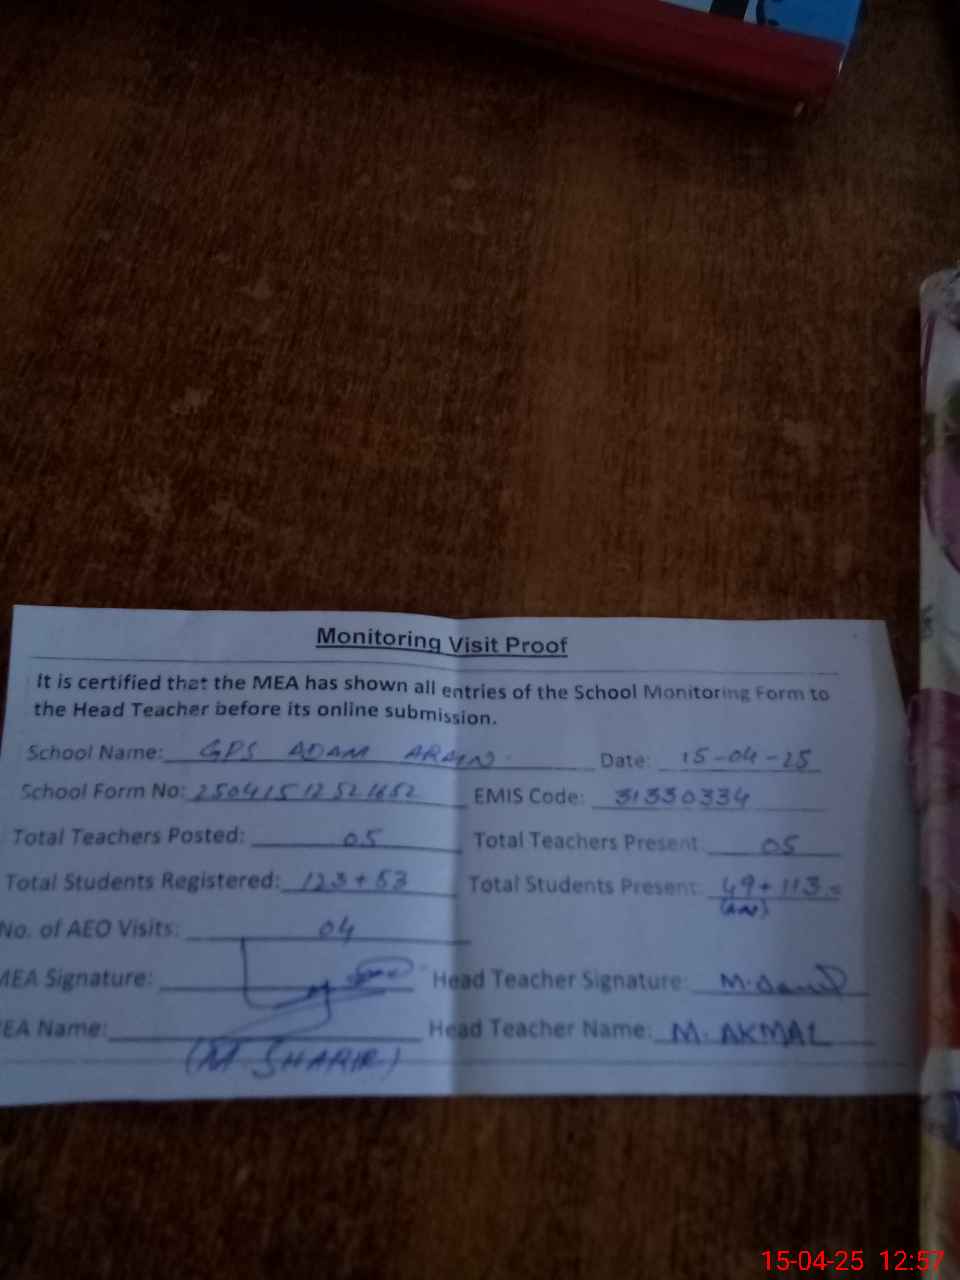 Monitoring Visit Proof
It is certified that the MEA has shown all entries of the School Monitoring Form to
the Head Teacher before its online submission.
School Name: GPS ADAM ARAIN. Date: 15-04-25
School Form No: 25041512521652 EMIS Code: 31330334
Total Teachers Posted: 05 Total Teachers Present: 05
Total Students Registered: 123+53 Total Students Present: 49+113=
No. of AEO Visits: 04
MEA Signature: Head Teacher Signature:
EA Name: Head Teacher Name: M. AKMAL
15-04-25 12:57